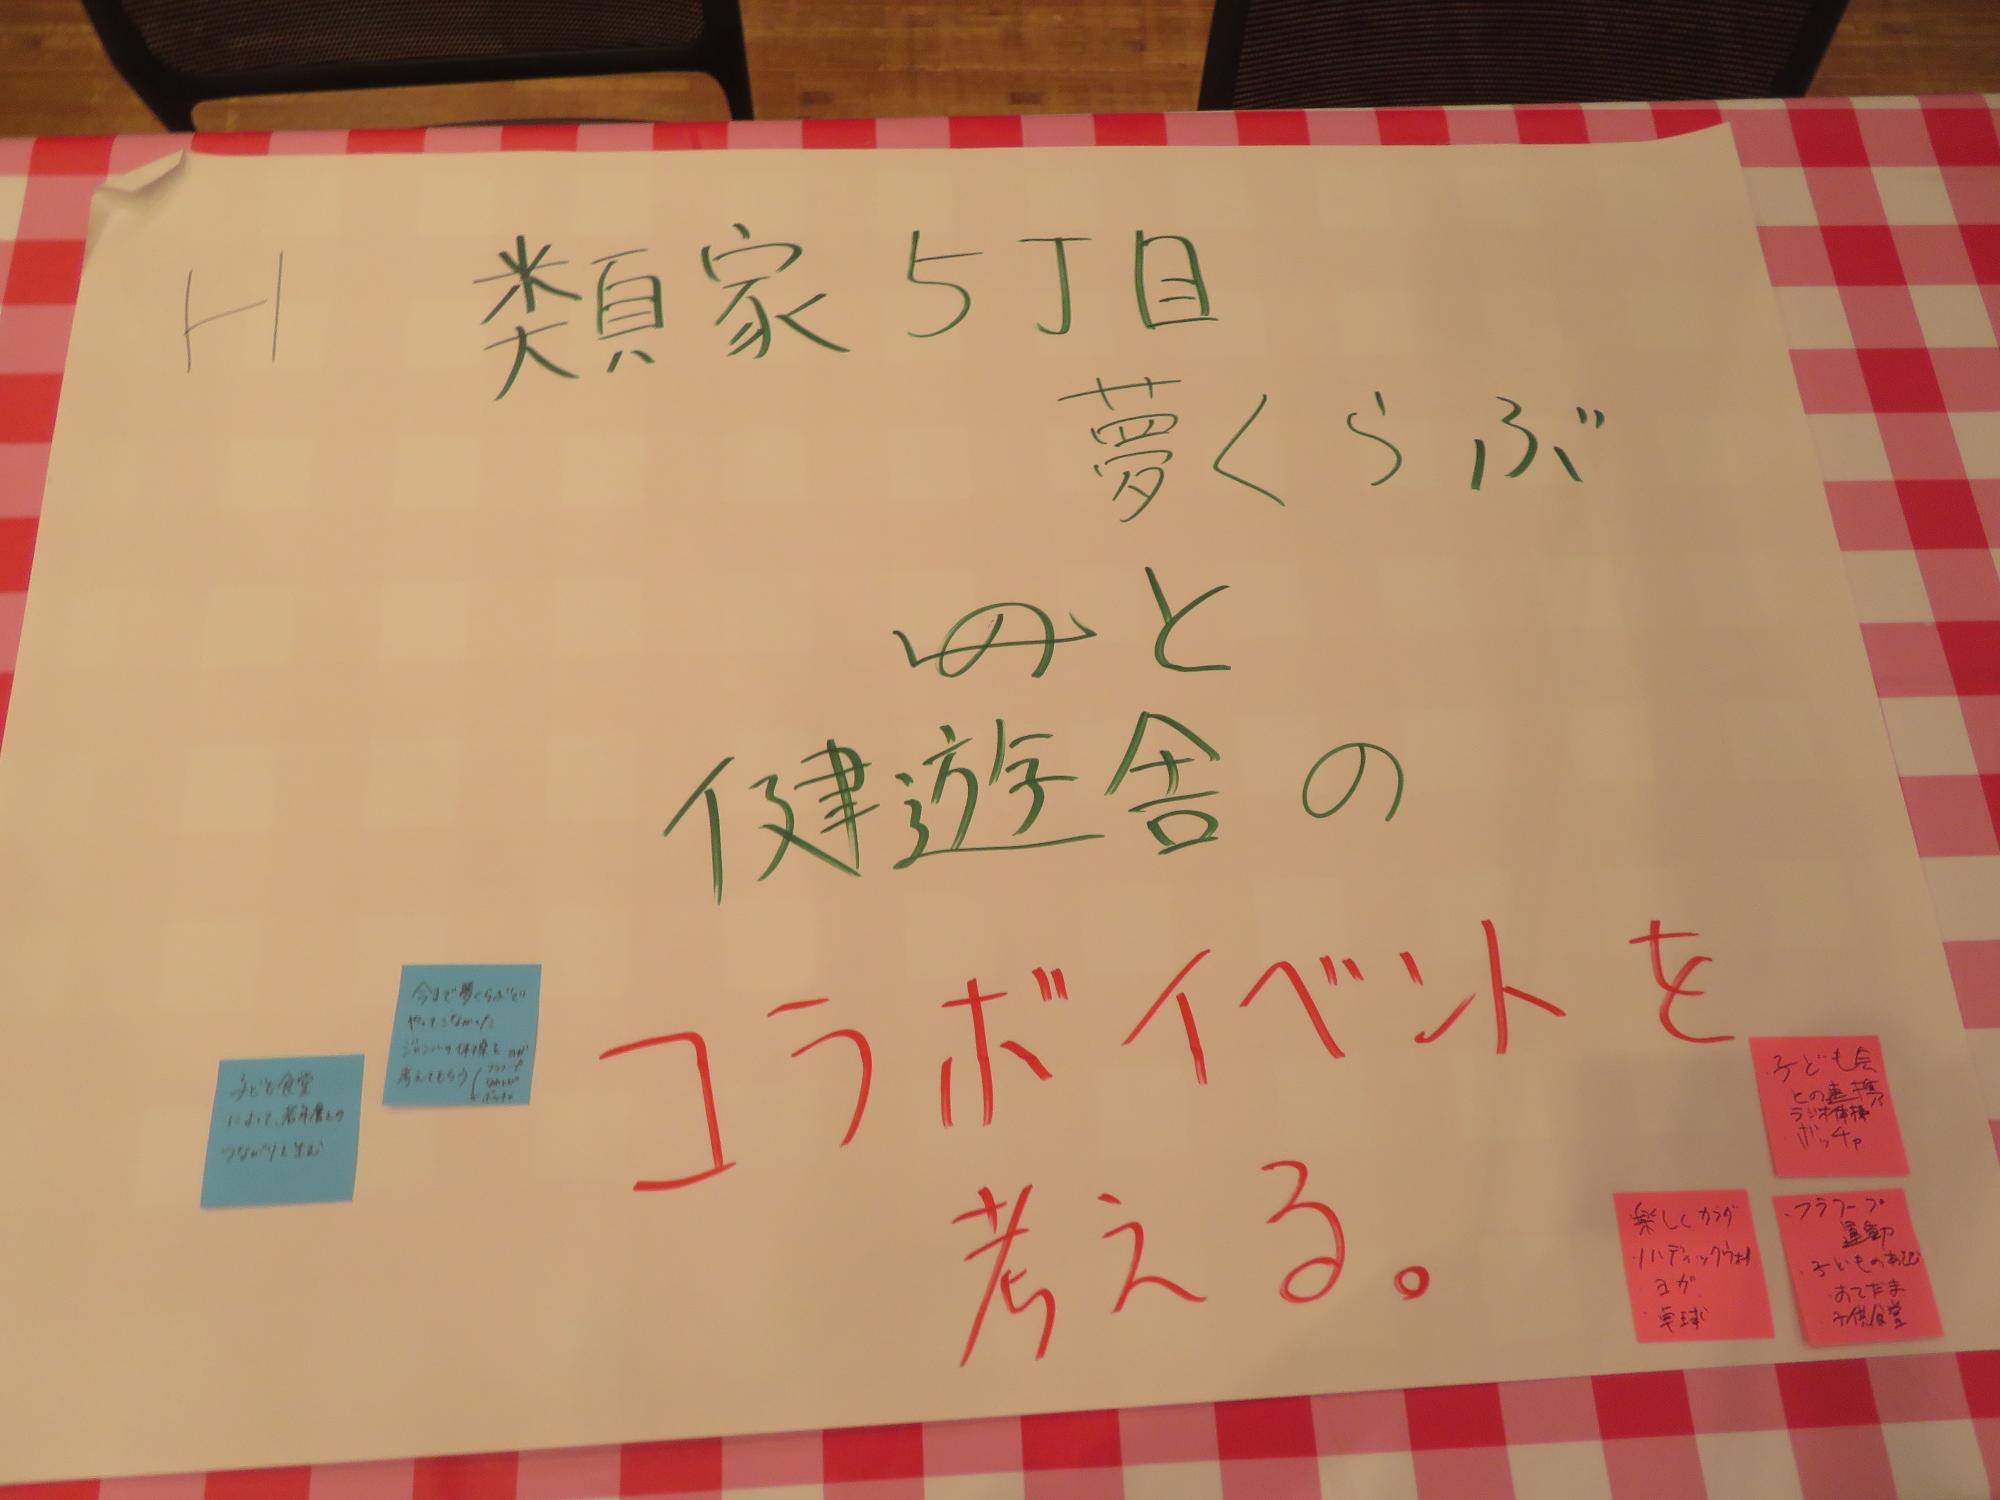 H
類家5丁目
夢くらぶ
と
健遊舎の
コラボイベントを
考える。
今まで夢くらぶで
やってこなかった
ジャンルの体操を ヨガ
考えてもらう
フラフープ
ボッチャ
子ども食堂
によって、若年層との
つながりを生む
子ども会
との連携
ラジオ体操
ボッチャ
楽しくカラダ
・ノルディックウォ
ヨガ
・卓球
・フラフープ
運動
・子どものあそび
おてだま
子供食堂